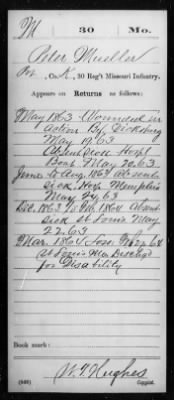 M 30 Mo.
Peter Mueller
Pvt., Co. K, 30 Reg't Missouri Infantry.
Appears on Returns as follows:
May 1863 Wounded in
action By Vicksburg
May 19.63
Absent sick Hosp
Boat May 20.63
June to Aug 1863 Absent
sick Hosp Memphis
May 24, 63
Dec. 1863 to 1864 Absent
sick St Louis May
22.63
Mar. 1864 Loss 64
St Louis Mo. Disch'd
for Disability
Book mark:
(546)
W.T. Hughes
Copyist.